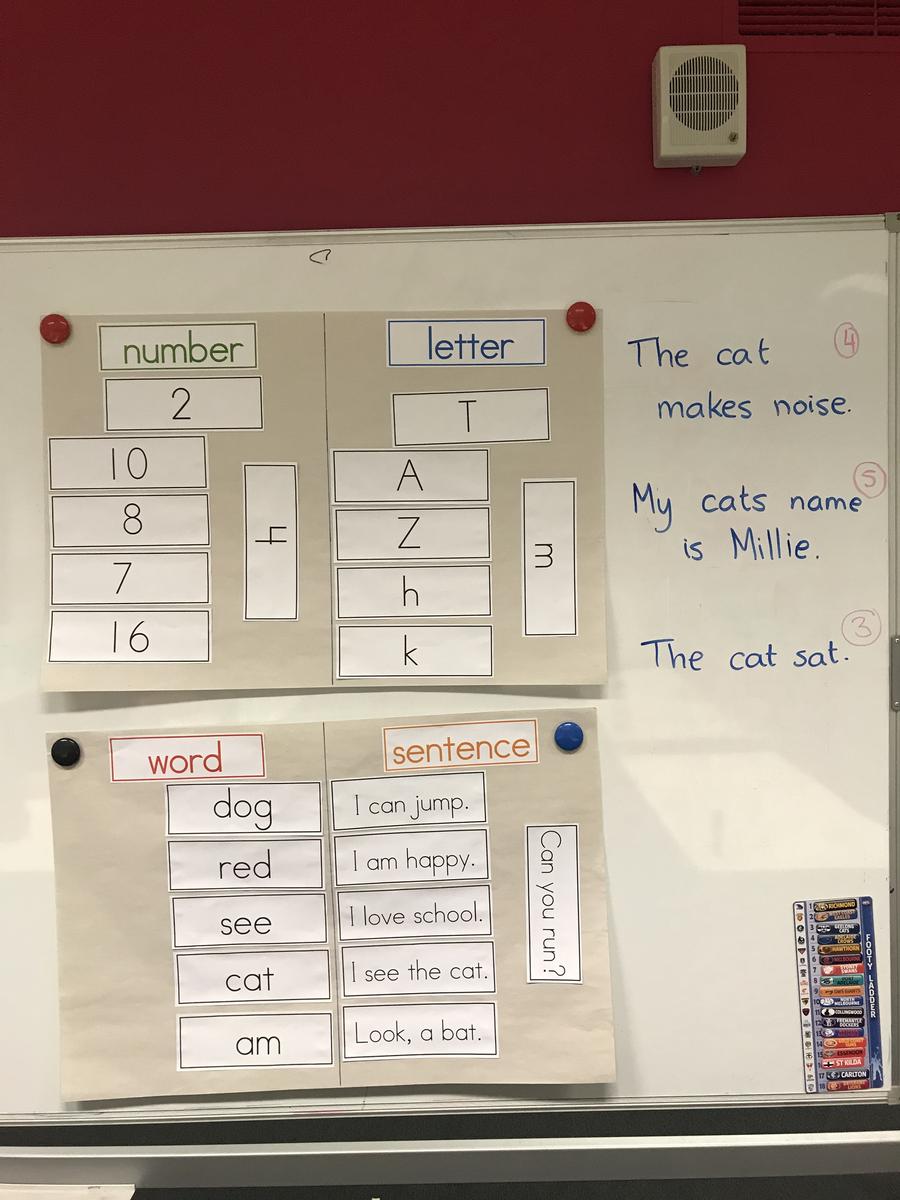 number
2
10
8
7
16
4
letter
T
A
Z
h
k
m
The cat 4
makes noise.
My cats name 5
is Millie.
The cat sat. 3
word
dog
red
see
cat
am
sentence
I can jump.
I am happy.
I love school.
I see the cat.
Look, a bat.
Can you run?
FOOTY LADDER
1 RICHMOND
2 WEST COAST EAGLES
3 GEELONG CATS
4 ADELAIDE CROWS
5 HAWTHORN
6 MELBOURNE
7 SYDNEY SWANS
8 PORT ADELAIDE
9 GWS GIANTS
10 NORTH MELBOURNE
COLLINGWOOD
12 FREMANTLE DOCKERS
14 GOLD COAST SUNS
15 ESSENDON
ST KILDA
17 CARLTON
18 BRISBANE LIONS